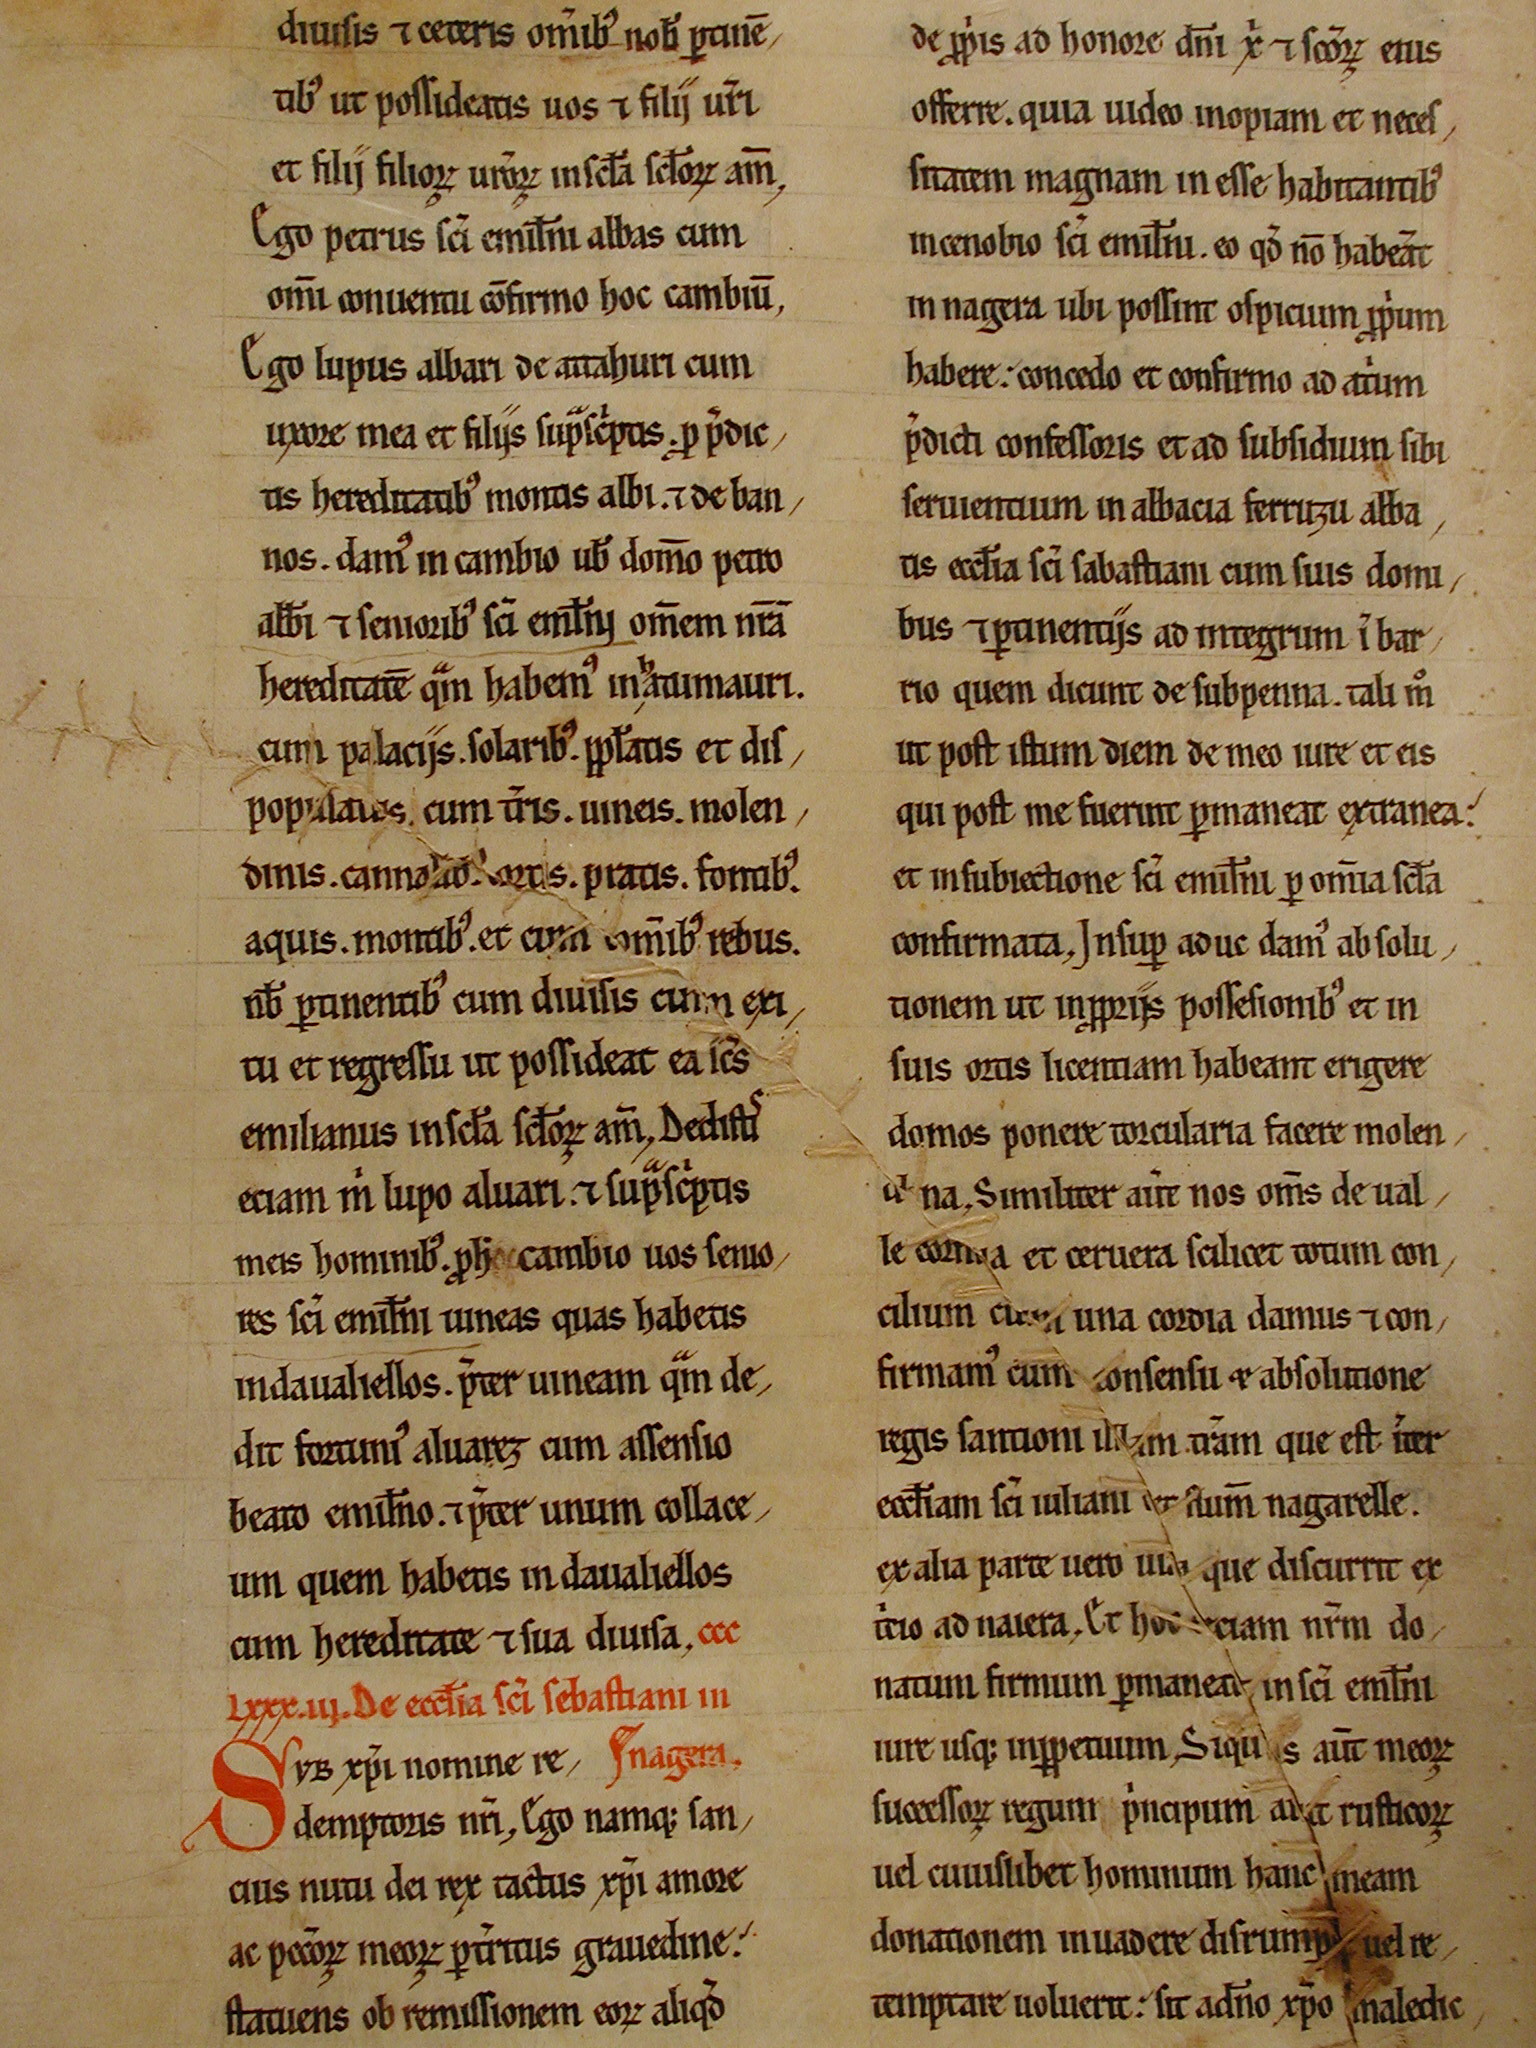 diuisis ⁊ ceteris om̅ib᷒ nob̅ ꝑtine̅/
tib᷒ ut possideatis uos ⁊ filij ur̅i
et filij filioꝝ ur̅oꝝ in scl̅a scl̅oꝝ am̅,
Ego petrus sc̅i emil̅ni abbas cum
om̅i conuentu co̅firmo hoc cambiu̅,
Ego lupus albari de attahuri cum
uxore mea et filijs sup̅sc̅ptis. ꝑ p̅dic/
tis hereditatib᷒ montis albi. ⁊ de ban/
nos. dam᷒ in cambio ub̅ dom̅o petro
abb̅i ⁊ seniorib᷒ sc̅i emil̅nj om̅em nr̅a̅
hereditate̅ qᵃm habem᷒ in
cum palacijs. solarib᷒. ppl̅atis et dis/
populatis. cum t̅ris. uineis. molen/
dinis. ortis. pratis. fontib᷒.
aquis. montib᷒. et cum om̅ib᷒ rebus.
nb̅ ꝑtinentib᷒ cum diuisis cum exi/
tu et regressu ut possideat ea sc̅s
emilianus in scl̅a scl̅oꝝ am̅, Dedistis
eciam mⁱ lupo aluari. ⁊ sup̅sc̅ptis
meis hominib᷒. ꝓ hoc cambio uos senio/
res sc̅i emil̅ni uineas quas habetis
in daualiellos. p̅ter uineam qᵃm de/
dit fortuni᷒ aluarez cum assensio
beato emil̅no. ⁊ p̅ter unum collace/
um quem habetis in daualiellos
cum hereditate ⁊ sua diuisa, ccc
lxxx.iij. De eccl̅ia sc̅i sebastiani in
Svb xp̅i nomine re/ Jnagera.
demptoris nr̅i, Ego namq; san/
cius nutu dei rex tactus xp̅i amore
ac pecc̅oꝝ meoꝝ ꝑt̅ritus grauedine.
statuens ob remissionem eoꝝ aliqd̅
de pp̅is ad honore dn̅i xⁱ ⁊ sc̅oꝝ eius
offerre. quia uideo inopiam et neces/
sitatem magnam in esse habitantib᷒
in cenobio sc̅i emil̅ni. eo qd̅ no̅ habea̅t
in nagera ubi possint ospicium pp̅um
habere: concedo et confirmo ad atⁱum
p̅dicti confessoris et ad subsidium sibi
seruientium in abbacia ferruzu abba/
tis eccl̅ia sc̅i sabastiani cum suis domi/
bus ⁊ ꝑtinentijs ad integrum i̅ bar/
rio quem dicunt de subpenna. tali mᵒ
ut post istum diem de meo iure et eis
qui post me fuerint ꝑmaneat extranea:
et in subiectione sc̅i emil̅ni ꝑ om̅ia scl̅a
confirmata, Jnsuꝑ aduc dam᷒ absolu/
tionem ut in ꝓprijs possesionib᷒ et in
suis ortis licentiam habeant erigere
domos ponere torcularia facere molen/
dina, Similiter aut̅ nos om̅s de ual/
le cornia et ceruera scilicet totum con/
cilium cum una cordia damus ⁊ con/
firmam᷒ cum consensu et absolutione
regis santioni illam t̅ram que est it̅er
eccl̅iam sc̅i iuliani et nagarelle.
ex alia parte uero uia que discurrit ex
itⁱo ad naiera, Et hoc eciam nr̅m do/
natum firmum ꝑmaneat in sc̅i emil̅ni
iure usq; in ꝑpetuum, Siquis aut̅ meoꝝ
successoꝝ regum pⁱncipum aut rusticoꝝ
uel cuiuslibet hominum hanc meam
donationem inuadere disrumpe uel re/
temptare uoluerit: sit a dn̅o xp̅o maledic/